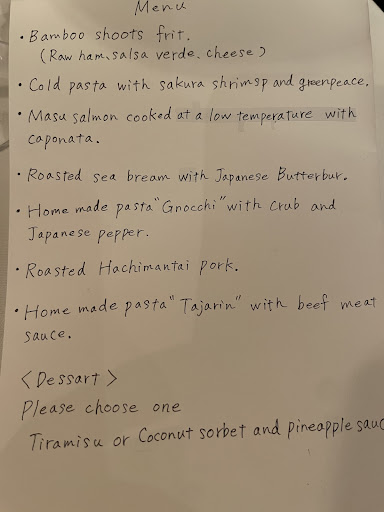 Menu
• Bamboo shoots frit.
(Raw ham, salsa verde. cheese)
• Cold pasta with sakura shrimsp and greenpeace.
• Masu salmon cooked at a low temperature with
caponata.
• Roasted sea bream with Japanese Butterbur.
• Home made pasta "Gnocchi" with crub and
Japanese pepper.
• Roasted Hachimantai pork.
• Home made pasta "Tajarin" with beef meat
sauce.
<Dessart>
Please choose one
Tiramisu or Coconut sorbet and pineapple sauc